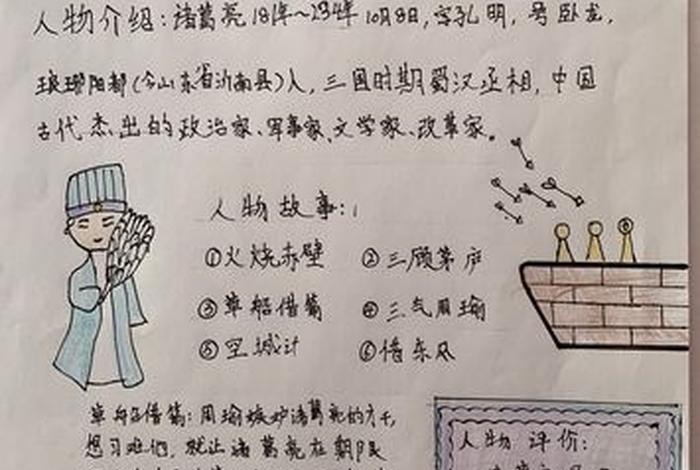 人物介绍：诸葛亮181年～234年10月8日，字孔明，号卧龙，
琅琊阳都（今山东省沂南县）人，三国时期蜀汉丞相，中国
古代杰出的政治家、军事家、文学家、改革家。
人物故事：
①火烧赤壁 ②三顾茅庐
③草船借箭 ④三气周瑜
⑤空城计 ⑥借东风
草船借箭：周瑜嫉妒诸葛亮的才干，
想刁难他，就让诸葛亮在
人物评价：